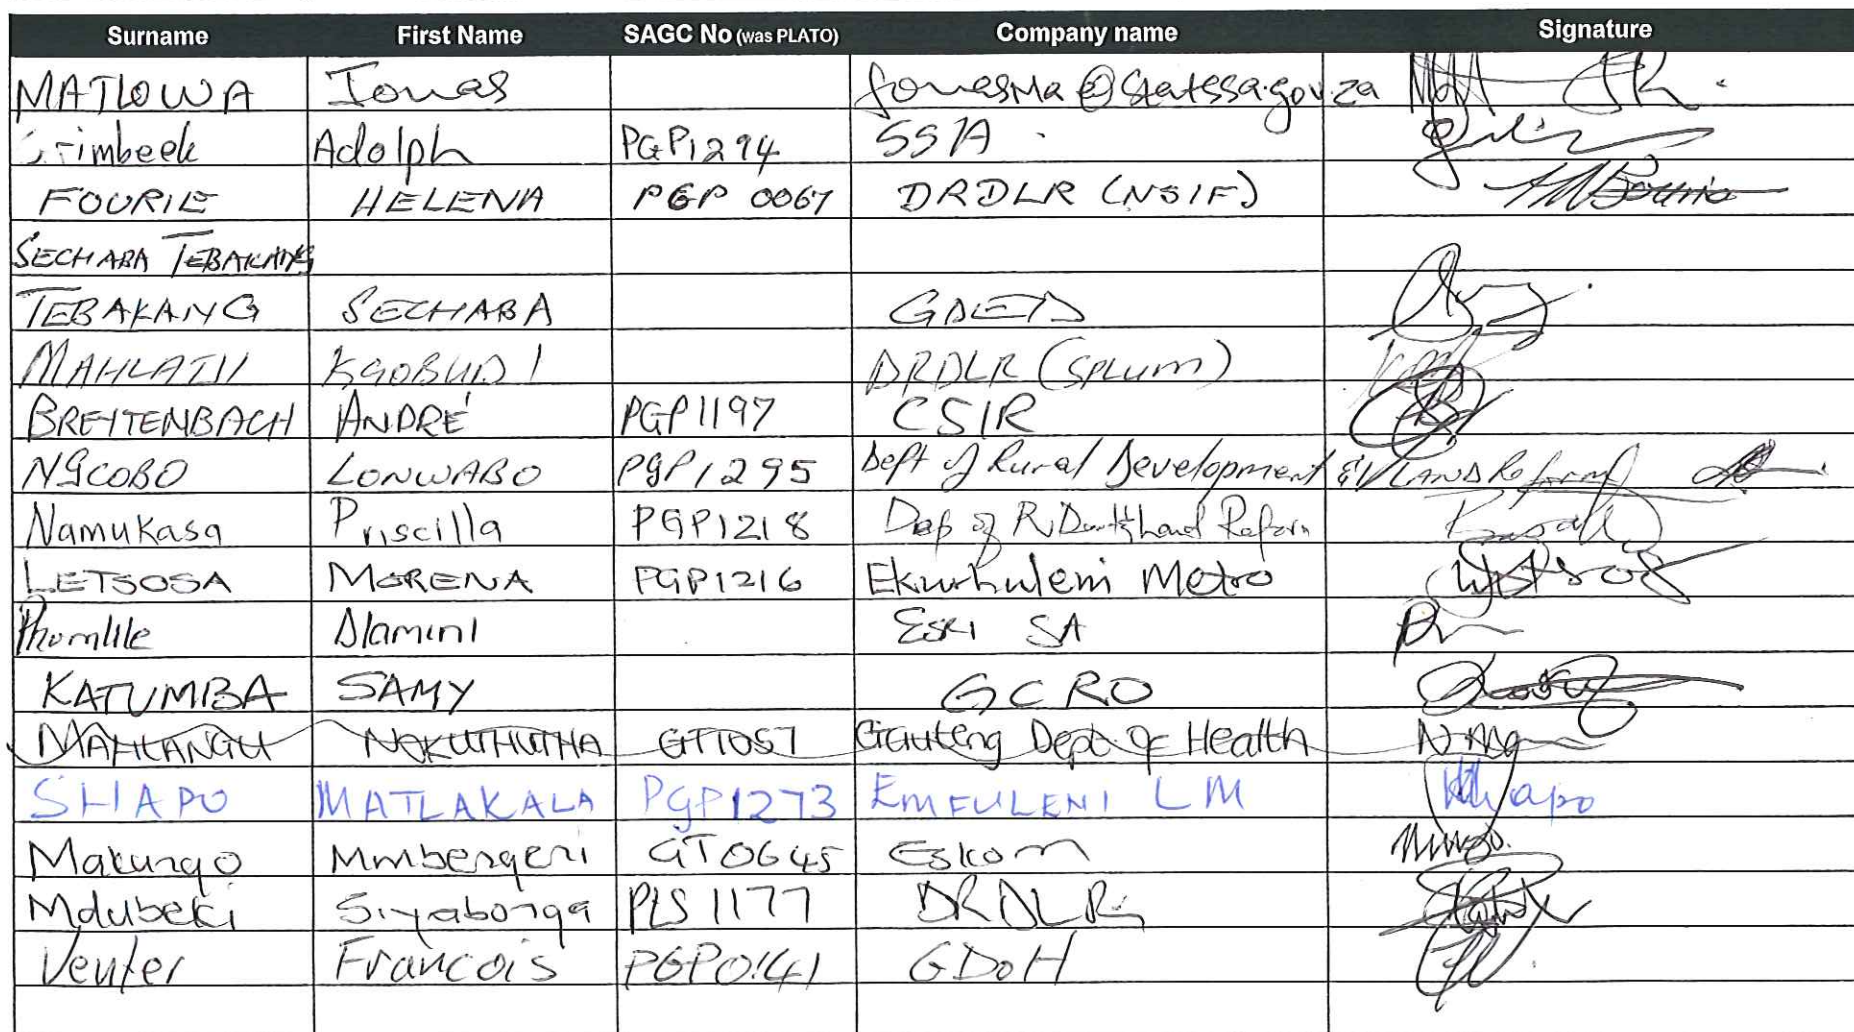 Surname First Name SAGC No (was PLATO) Company name Signature
MATLOWA Jonas jonasma@statssa.gov.za
Grimbeek Adolph PGP1294 SSA
FOURIE HELENA PGP 0067 DRDLR (NSIF)
SECHABA TEBAKANG
TEBAKANG SECHABA
MAHLATJI KGOBUDI DRDLR (SPLUM)
BREITENBACH ANDRÉ PGP1197 CSIR
NGCOBO LONWABO PGP1295 Dept of Rural Development & LAND Reform
Namukasa Priscilla PGP1218 Dep of R. & Land Reform
LETSOSA MORENA PGP1216 Ekurhuleni Metro
Phumlile Dlamini ESRI SA
KATUMBA SAMY GCRO
MAHLANGU NOKUTHUTHA GTT051 Gauteng Dept of Health
SHAPO MATLAKALA PGP1273 EMFULENI LM
Makungo Mmbengeni GT0645 Eskom
Mdubeki Siyabonga PLS 1177 DRDLR
Venter Francois PGP0141 GDoH